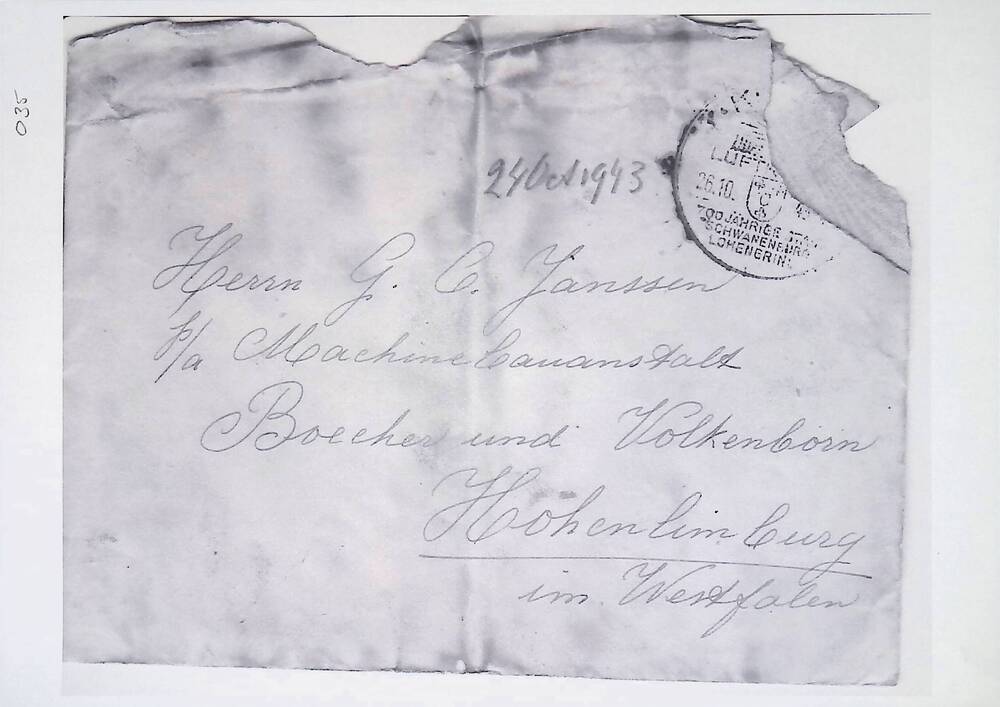 035
24 Oct 1943
LUFT
26.10.
700 JÄHRIGE
SCHWANENBURG
LOHENGRIN
Herrn G. C. Janssen
p/a Machinebauanstalt
Boecher und Volkenborn
Höhenlimburg
im Westfalen